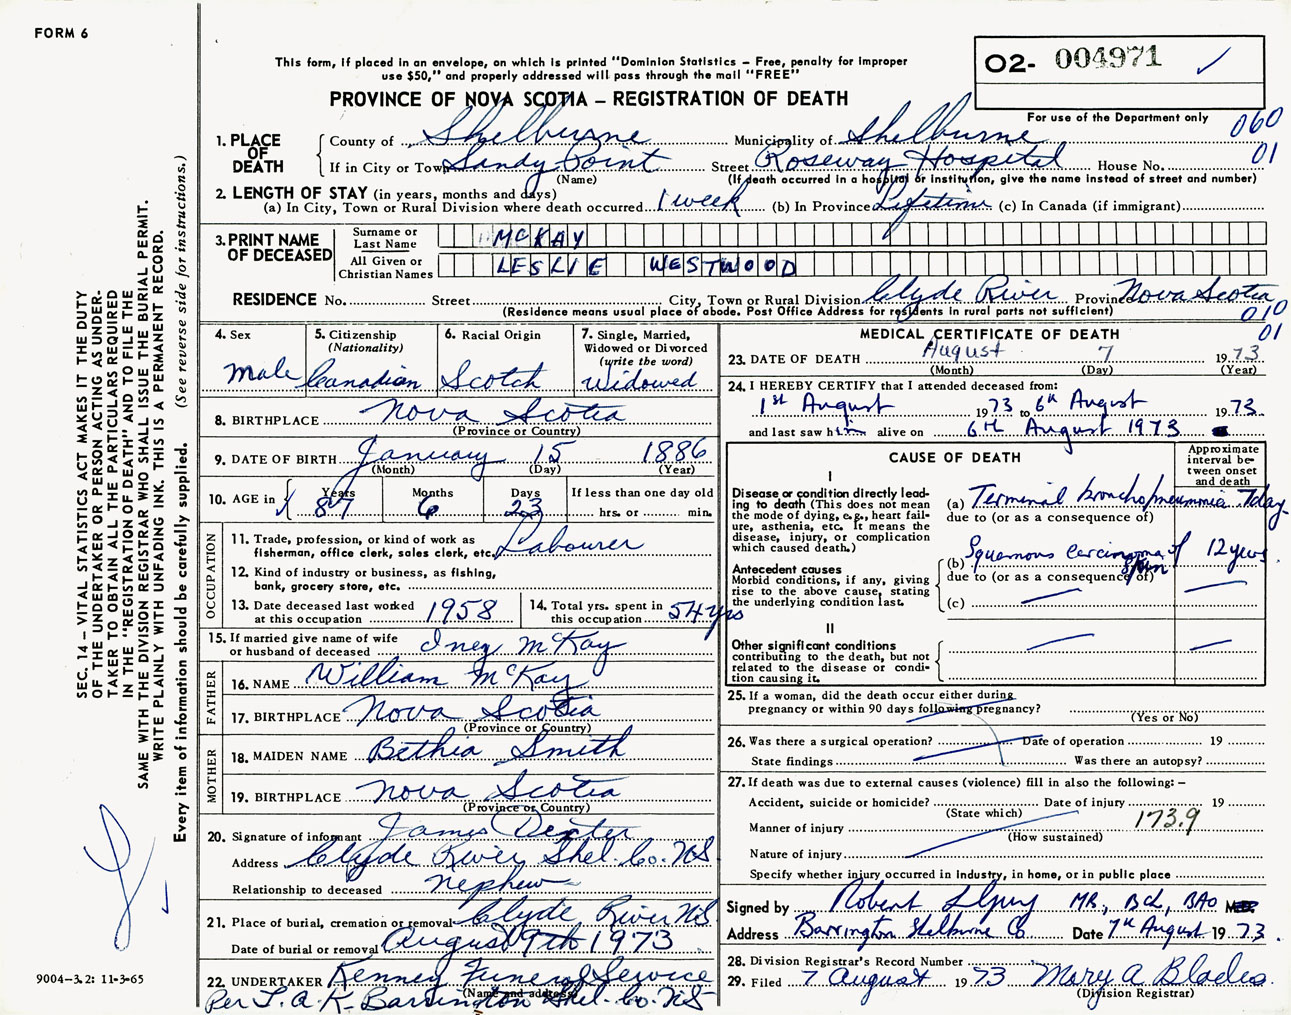 FORM 6
This form, if placed in an envelope, on which is printed "Dominion Statistics – Free, penalty for improper
use $50," and properly addressed will pass through the mail "FREE"
PROVINCE OF NOVA SCOTIA – REGISTRATION OF DEATH
O2- 004971 ✓
For use of the Department only
060
01
1. PLACE OF DEATH
County of Shelburne Municipality of Shelburne
If in City or Town Sandy Point Street Roseway Hospital House No.
(Name) (If death occurred in a hospital or institution, give the name instead of street and number)
2. LENGTH OF STAY (in years, months and days)
(a) In City, Town or Rural Division where death occurred 1 week (b) In Province Lifetime (c) In Canada (if immigrant)
3. PRINT NAME OF DECEASED
Surname or Last Name McKAY
All Given or Christian Names LESLIE WESTWOOD
RESIDENCE No. Street City, Town or Rural Division Clyde River Province Nova Scotia
(Residence means usual place of abode. Post Office Address for residents in rural parts not sufficient)
010
01
4. Sex Male
5. Citizenship (Nationality) Canadian
6. Racial Origin Scotch
7. Single, Married, Widowed or Divorced (write the word) Widowed
8. BIRTHPLACE Nova Scotia
(Province or Country)
9. DATE OF BIRTH January 15 1886
(Month) (Day) (Year)
10. AGE in Years 87 Months 6 Days 23 If less than one day old
hrs. or min.
OCCUPATION
11. Trade, profession, or kind of work as
fisherman, office clerk, sales clerk, etc. Labourer
12. Kind of industry or business, as fishing,
bank, grocery store, etc.
13. Date deceased last worked
at this occupation 1958
14. Total yrs. spent in
this occupation 54 yrs
15. If married give name of wife
or husband of deceased Iney McKay
FATHER
16. NAME William McKay
17. BIRTHPLACE Nova Scotia
(Province or Country)
MOTHER
18. MAIDEN NAME Bethia Smith
19. BIRTHPLACE Nova Scotia
(Province or Country)
20. Signature of informant James Dexter
Address Clyde River Shel. Co. NS
Relationship to deceased nephew
21. Place of burial, cremation or removal Clyde River NS
Date of burial or removal August 9th 1973
22. UNDERTAKER Kenney Funeral Service
(Name and address)
Per T. A. K. Barrington Shel. Co. NS
MEDICAL CERTIFICATE OF DEATH
23. DATE OF DEATH August 7 1973
(Month) (Day) (Year)
24. I HEREBY CERTIFY that I attended deceased from:
1st August 1973 to 6th August 1973
and last saw him alive on 6th August 1973
CAUSE OF DEATH
Approximate interval between onset and death
I
Disease or condition directly lead-
ing to death (This does not mean
the mode of dying, e.g., heart fail-
ure, asthenia, etc. It means the
disease, injury, or complication
which caused death.)
(a) Terminal bronchopneumonia 7 day
due to (or as a consequence of)
Antecedent causes
Morbid conditions, if any, giving
rise to the above cause, stating
the underlying condition last.
(b) Squamous carcinoma of skin 12 years
due to (or as a consequence of)
(c)
II
Other significant conditions
contributing to the death, but not
related to the disease or condi-
tion causing it.
25. If a woman, did the death occur either during
pregnancy or within 90 days following pregnancy?
(Yes or No)
26. Was there a surgical operation? Date of operation 19
State findings Was there an autopsy?
27. If death was due to external causes (violence) fill in also the following: –
Accident, suicide or homicide? Date of injury 19
(State which)
Manner of injury 173.9
(How sustained)
Nature of injury
Specify whether injury occurred in industry, in home, or in public place
Signed by Robert MB, BCh, BAO
Address Barrington Shelburne Co Date 7th August 1973.
28. Division Registrar's Record Number
29. Filed 7 August 1973 Mary A Blades
(Division Registrar)
SEC. 14 – VITAL STATISTICS ACT MAKES IT THE DUTY
OF THE UNDERTAKER OR PERSON ACTING AS UNDER-
TAKER TO OBTAIN ALL THE PARTICULARS REQUIRED
IN THE "REGISTRATION OF DEATH" AND TO FILE THE
SAME WITH THE DIVISION REGISTRAR WHO SHALL ISSUE THE BURIAL PERMIT.
WRITE PLAINLY WITH UNFADING INK. THIS IS A PERMANENT RECORD.
Every item of information should be carefully supplied. (See reverse side for instructions.)
9004-3.2: 11-3-65